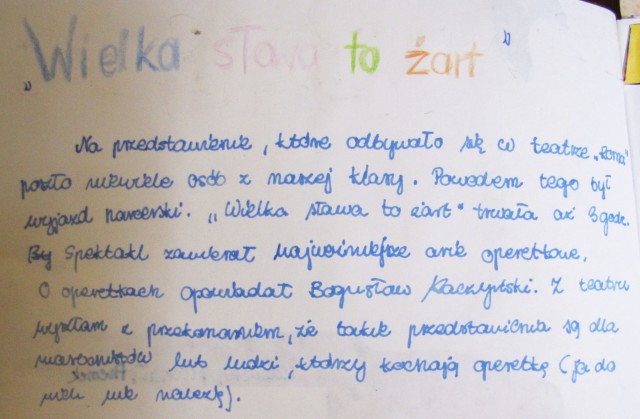 „Wielka sława to żart"
Na przedstawienie, które odbywało się w teatrze „Roma"
poszło niewiele osób z naszej klasy. Powodem tego był
wyjazd narciarski. „Wielka sława to żart" trwała aż 3 godz.
By Spektakl zawierał najważniejsze arie operetkowe.
O operetkach opowiadał Bogusław Kaczyński. Z teatru
wyszłam z przekonaniem, że takie przedstawienia są dla
lub ludzi, którzy kochają operetkę (ja do
nich nie należę).